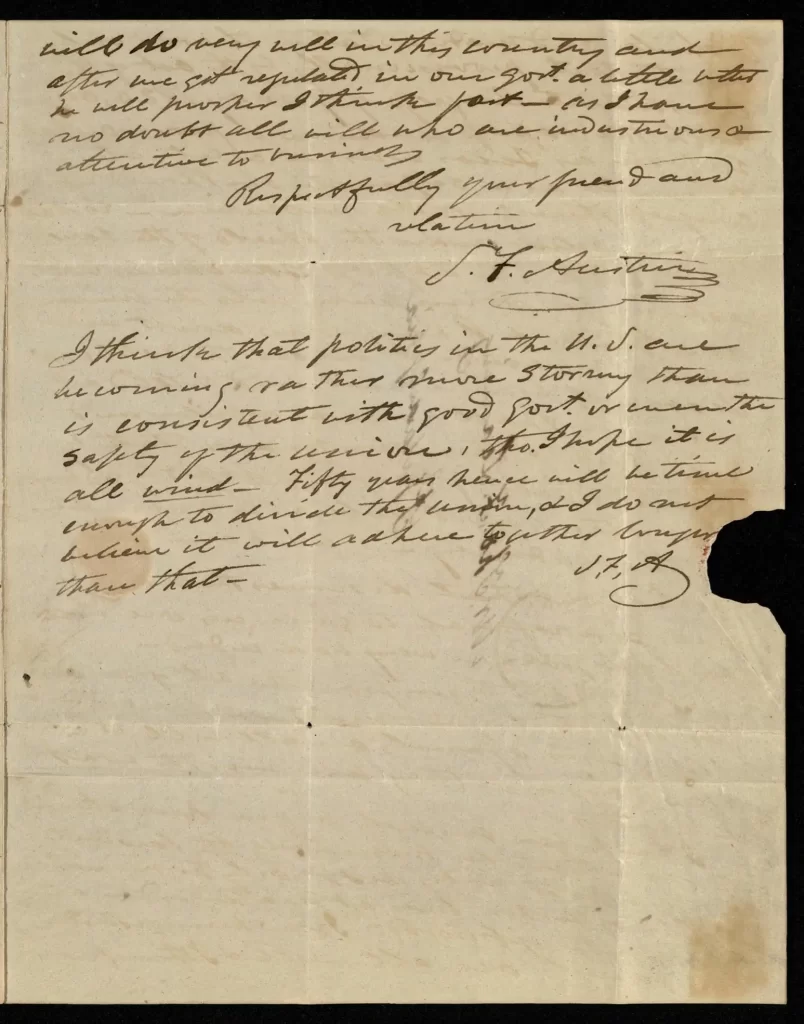 will do very well in this country and
after we get regulated in our govt. a little better
he will prosper I think fast— as I have
no doubt all will who are industrious &
attentive to business
Respectfully your friend and
relation
S. F. Austin
I think that politics in the U. S. are
becoming rather more stormy than
is consistent with good govt. or even the
safety of the union, tho. I hope it is
all wind— Fifty years hence will be time
enough to divide the union, & I do not
believe it will adhere together longer
than that—
S, F, A